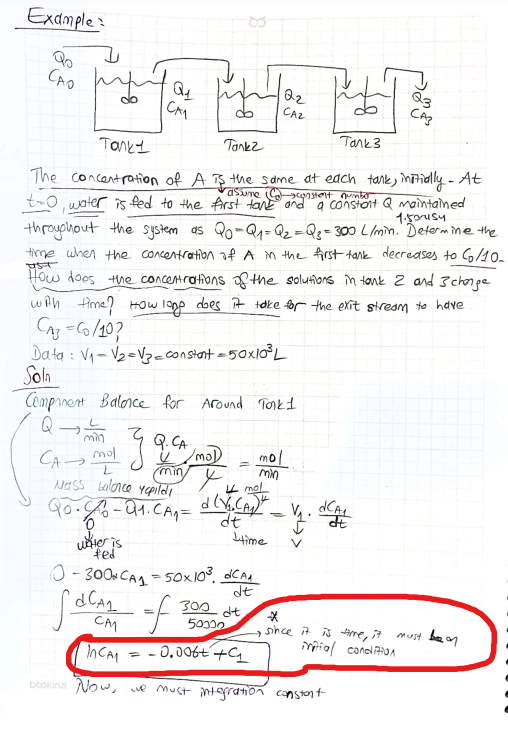 Example:
Q0
CA0
Q1
CA1
Q2
CA2
Q3
CA3
Tank1
Tank2
Tank3
The concentration of A is the same at each tank, initially. At
assume C0 → constant number
t=0, water is fed to the first tank and a constant Q maintained
throughout the system as Q0=Q1=Q2=Q3=300 L/min. Determine the
time when the concentration of A in the first tank decreases to C0/10.
How does the concentrations of the solutions in tank 2 and 3 change
with time? How long does it take for the exit stream to have
CA3 = C0/10?
Data: V1 = V2 = V3 = constant = 50x10³L
Soln
Component Balance for Around Tank1
Q → L/min
CA → mol/L
Q.CA
L/min mol/L = mol/min
Mass balance yapıldı
Q0.CA0 - Q1.CA1 = d(V1.CA1)/dt = V1.dCA1/dt
L mol/L
0
water is
fed
time
V
0 - 300.CA1 = 50x10³.dCA1/dt
∫dCA1/CA1 = ∫ 300/50000 dt
* since it is time, it must
initial condition
lnCA1 = -0.006t + C1
Now, we must integration constant